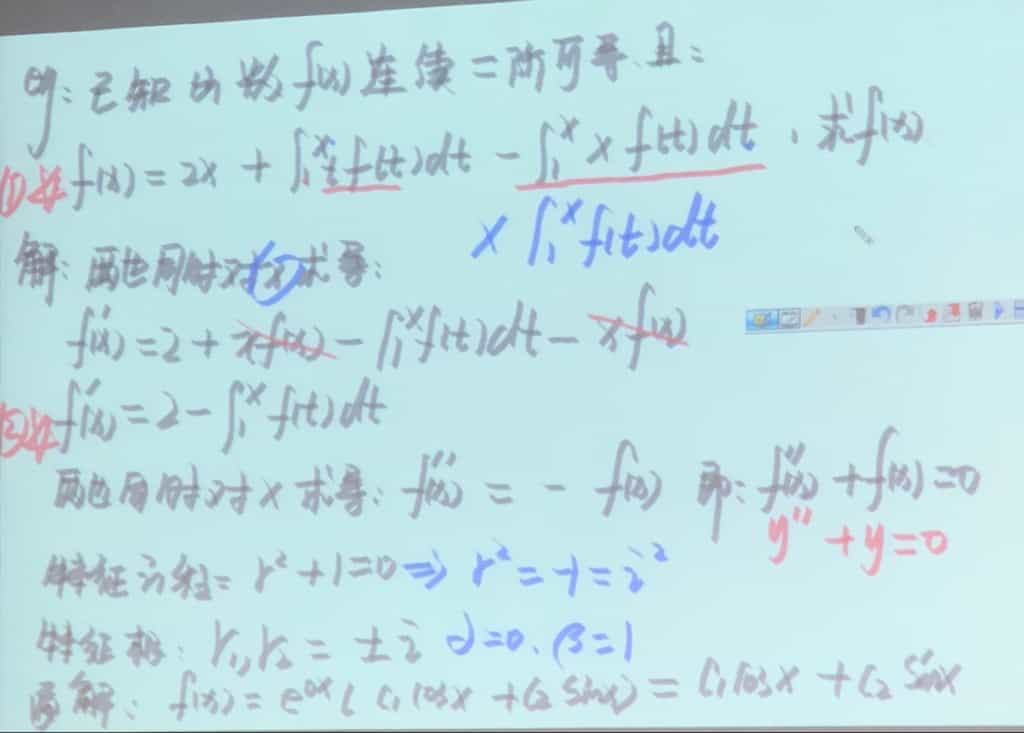 例:已知函数f(x)连续二阶可导,且:
①式 f(x) = 2x + ∫₁ˣ t f(t)dt - ∫₁ˣ x f(t)dt,求f(x)
x ∫₁ˣ f(t)dt
解:两边同时对x求导:
f'(x) = 2 + xf(x) - ∫₁ˣ f(t)dt - xf(x)
②式 f'(x) = 2 - ∫₁ˣ f(t)dt
两边同时对x求导:f''(x) = - f(x) 即:f''(x) + f(x) = 0
y'' + y = 0
特征方程:r² + 1 = 0 ⇒ r² = -1 = i²
特征根:r₁,r₂ = ±i α=0,β=1
通解:f(x) = e^{0x}(C₁cosx + C₂sinx) = C₁cosx + C₂sinx